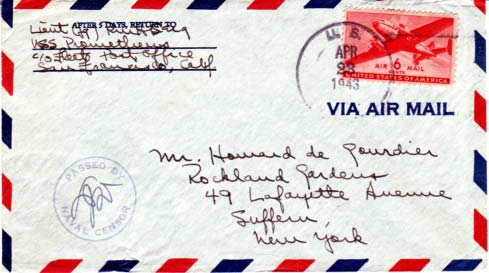 AFTER 5 DAYS, RETURN TO
Lieut
USS Prometheus
c/o Fleet Post Office
San Francisco, Calif
U. S.
APR
23
1943
AIR 6 MAIL
CENTS
UNITED STATES OF AMERICA
VIA AIR MAIL
Mr. Howard de Gourdier
Rockland Gardens
49 Lafayette Avenue
Suffern
New York
PASSED BY
NAVAL CENSOR